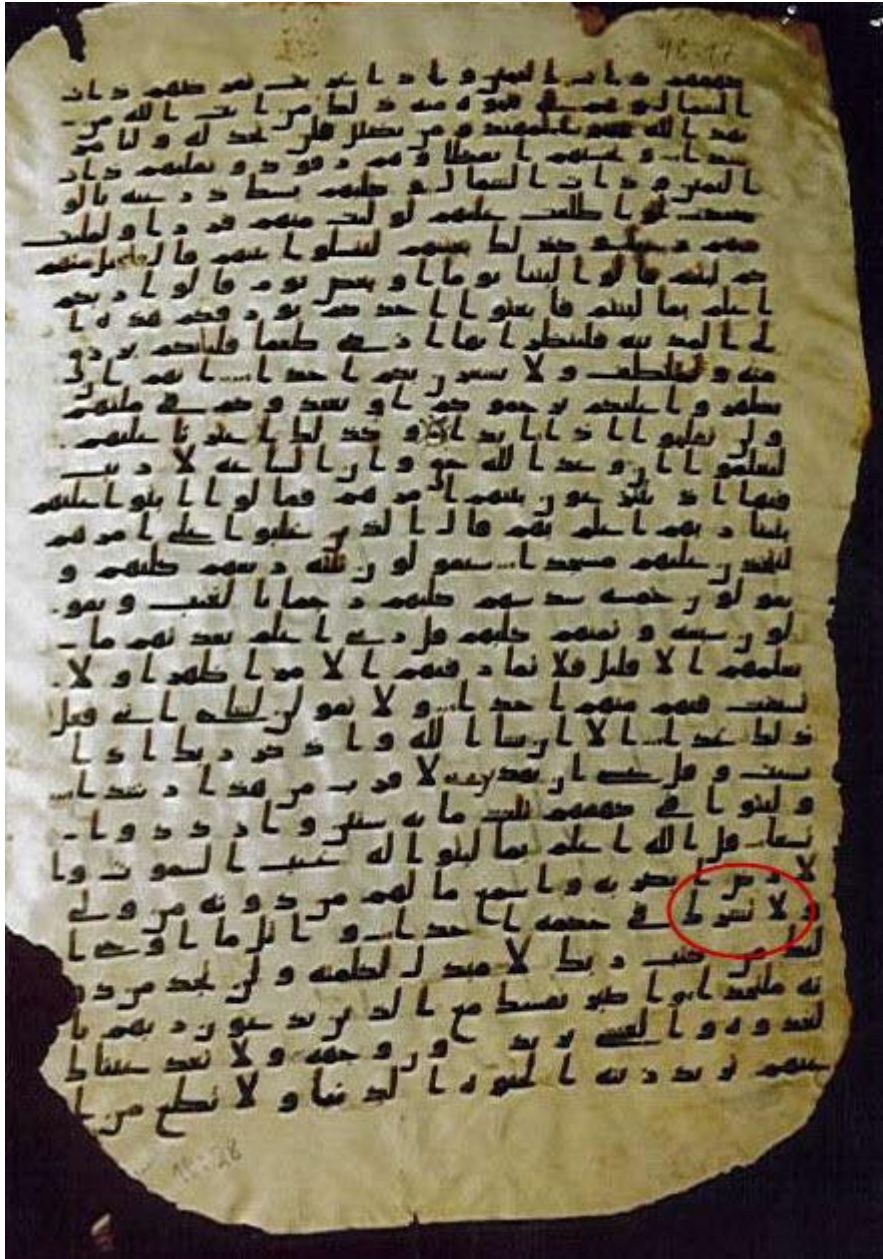 18-17
كهفهم ذات اليمين واذا غربت تقرضهم ذات
الشمال وهم في فجوه منه ذلك من ايت الله من
يهد الله فهو المهتد ومن يضلل فلن تجد له وليا مر
شدا وتحسبهم ايقاظا وهم رقود ونقلبهم ذات
اليمين وذات الشمال وكلبهم بسط ذرعيه بالو
صيد لو اطلعت عليهم لوليت منهم فررا ولملت
منهم رعبا وكذلك بعثنهم ليتسلوا بينهم قال قيل منهم
كم لبثتم قالوا لبثنا يوما او بعض يوم قالوا ربكم
اعلم بما لبثتم فابعثوا احدكم بورقكم هذه ا
لى المدينه فلينظر ايها ازكى طعما فلياتكم برزق
منه وليتلطف ولا يشعرن بكم احدا انهم ان
يظهروا عليكم يرجموكم او يعيدوكم في ملتهم
ولن تفلحوا اذا ابدا وكذلك اعثرنا عليهم
ليعلموا ان وعد الله حق وان الساعه لا ريب
فيها اذ يتنزعون بينهم امرهم فقالوا ابنوا عليهم
بنينا ربهم اعلم بهم قال الذين غلبوا على امرهم
لنتخذن عليهم مسجدا سيقولون ثلثه ربعهم كلبهم و
يقولون خمسه سدسهم كلبهم رجما بالغيب ويقو
لون سبعه وثمنهم كلبهم قل ربي اعلم بعدتهم ما
يعلمهم الا قليل فلا تمار فيهم الا مرا ظهرا ولا
تستفت فيهم منهم احدا ولا تقولن لشاي اني فعل
ذلك غدا الا ان يشا الله واذكر ربك اذا
نسيت وقل عسى ان يهدين ربي لاقرب من هذا رشدا
ولبثوا في كهفهم ثلث مايه سنين وازددوا
تسعا قل الله اعلم بما لبثوا له غيب السموت وا
لارض ابصر به واسمع ما لهم من دونه من ولي
ولا تشرك في حكمه احدا واتل ما اوحي ا
ليك من كتب ربك لا مبدل لكلمته ولن تجد من دو
نه ملتحدا واصبر نفسك مع الذين يدعون ربهم با
لغدوه والعشي يريدون وجهه ولا تعد عيناك
عنهم تريد زينه الحيوه الدنيا ولا تطع من ا
18:28